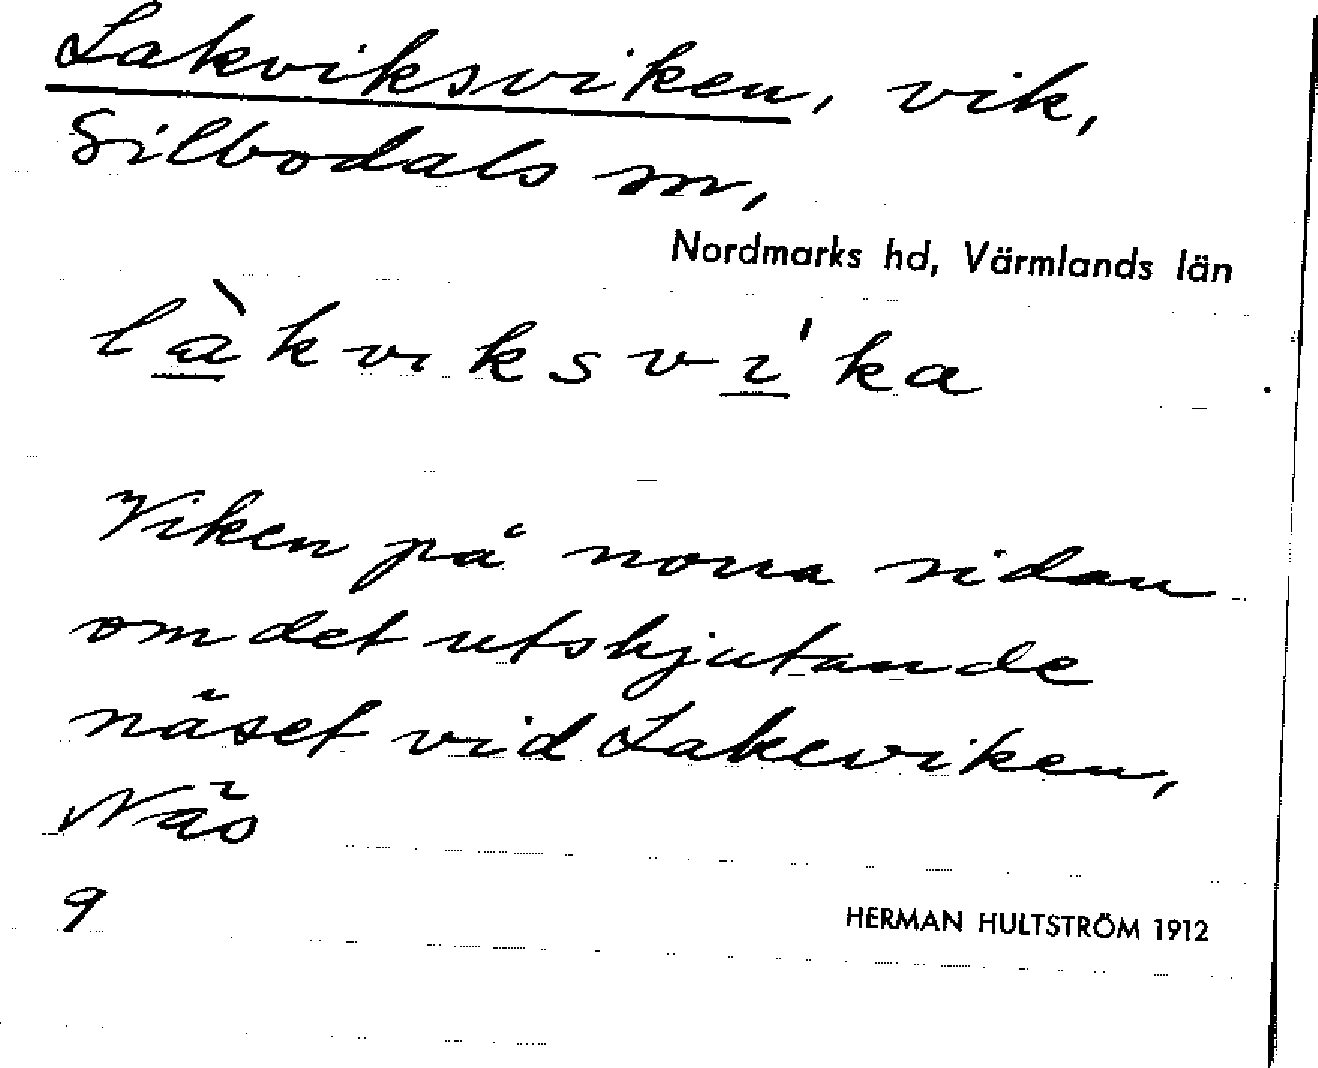 Lakviksviken, vik,
Silbodals sn,
Nordmarks hd, Värmlands län
làkviksvíka
Viken på norra sidan
om det utskjutande
näset vid Lakeviken,
Näs
9
HERMAN HULTSTRÖM 1912